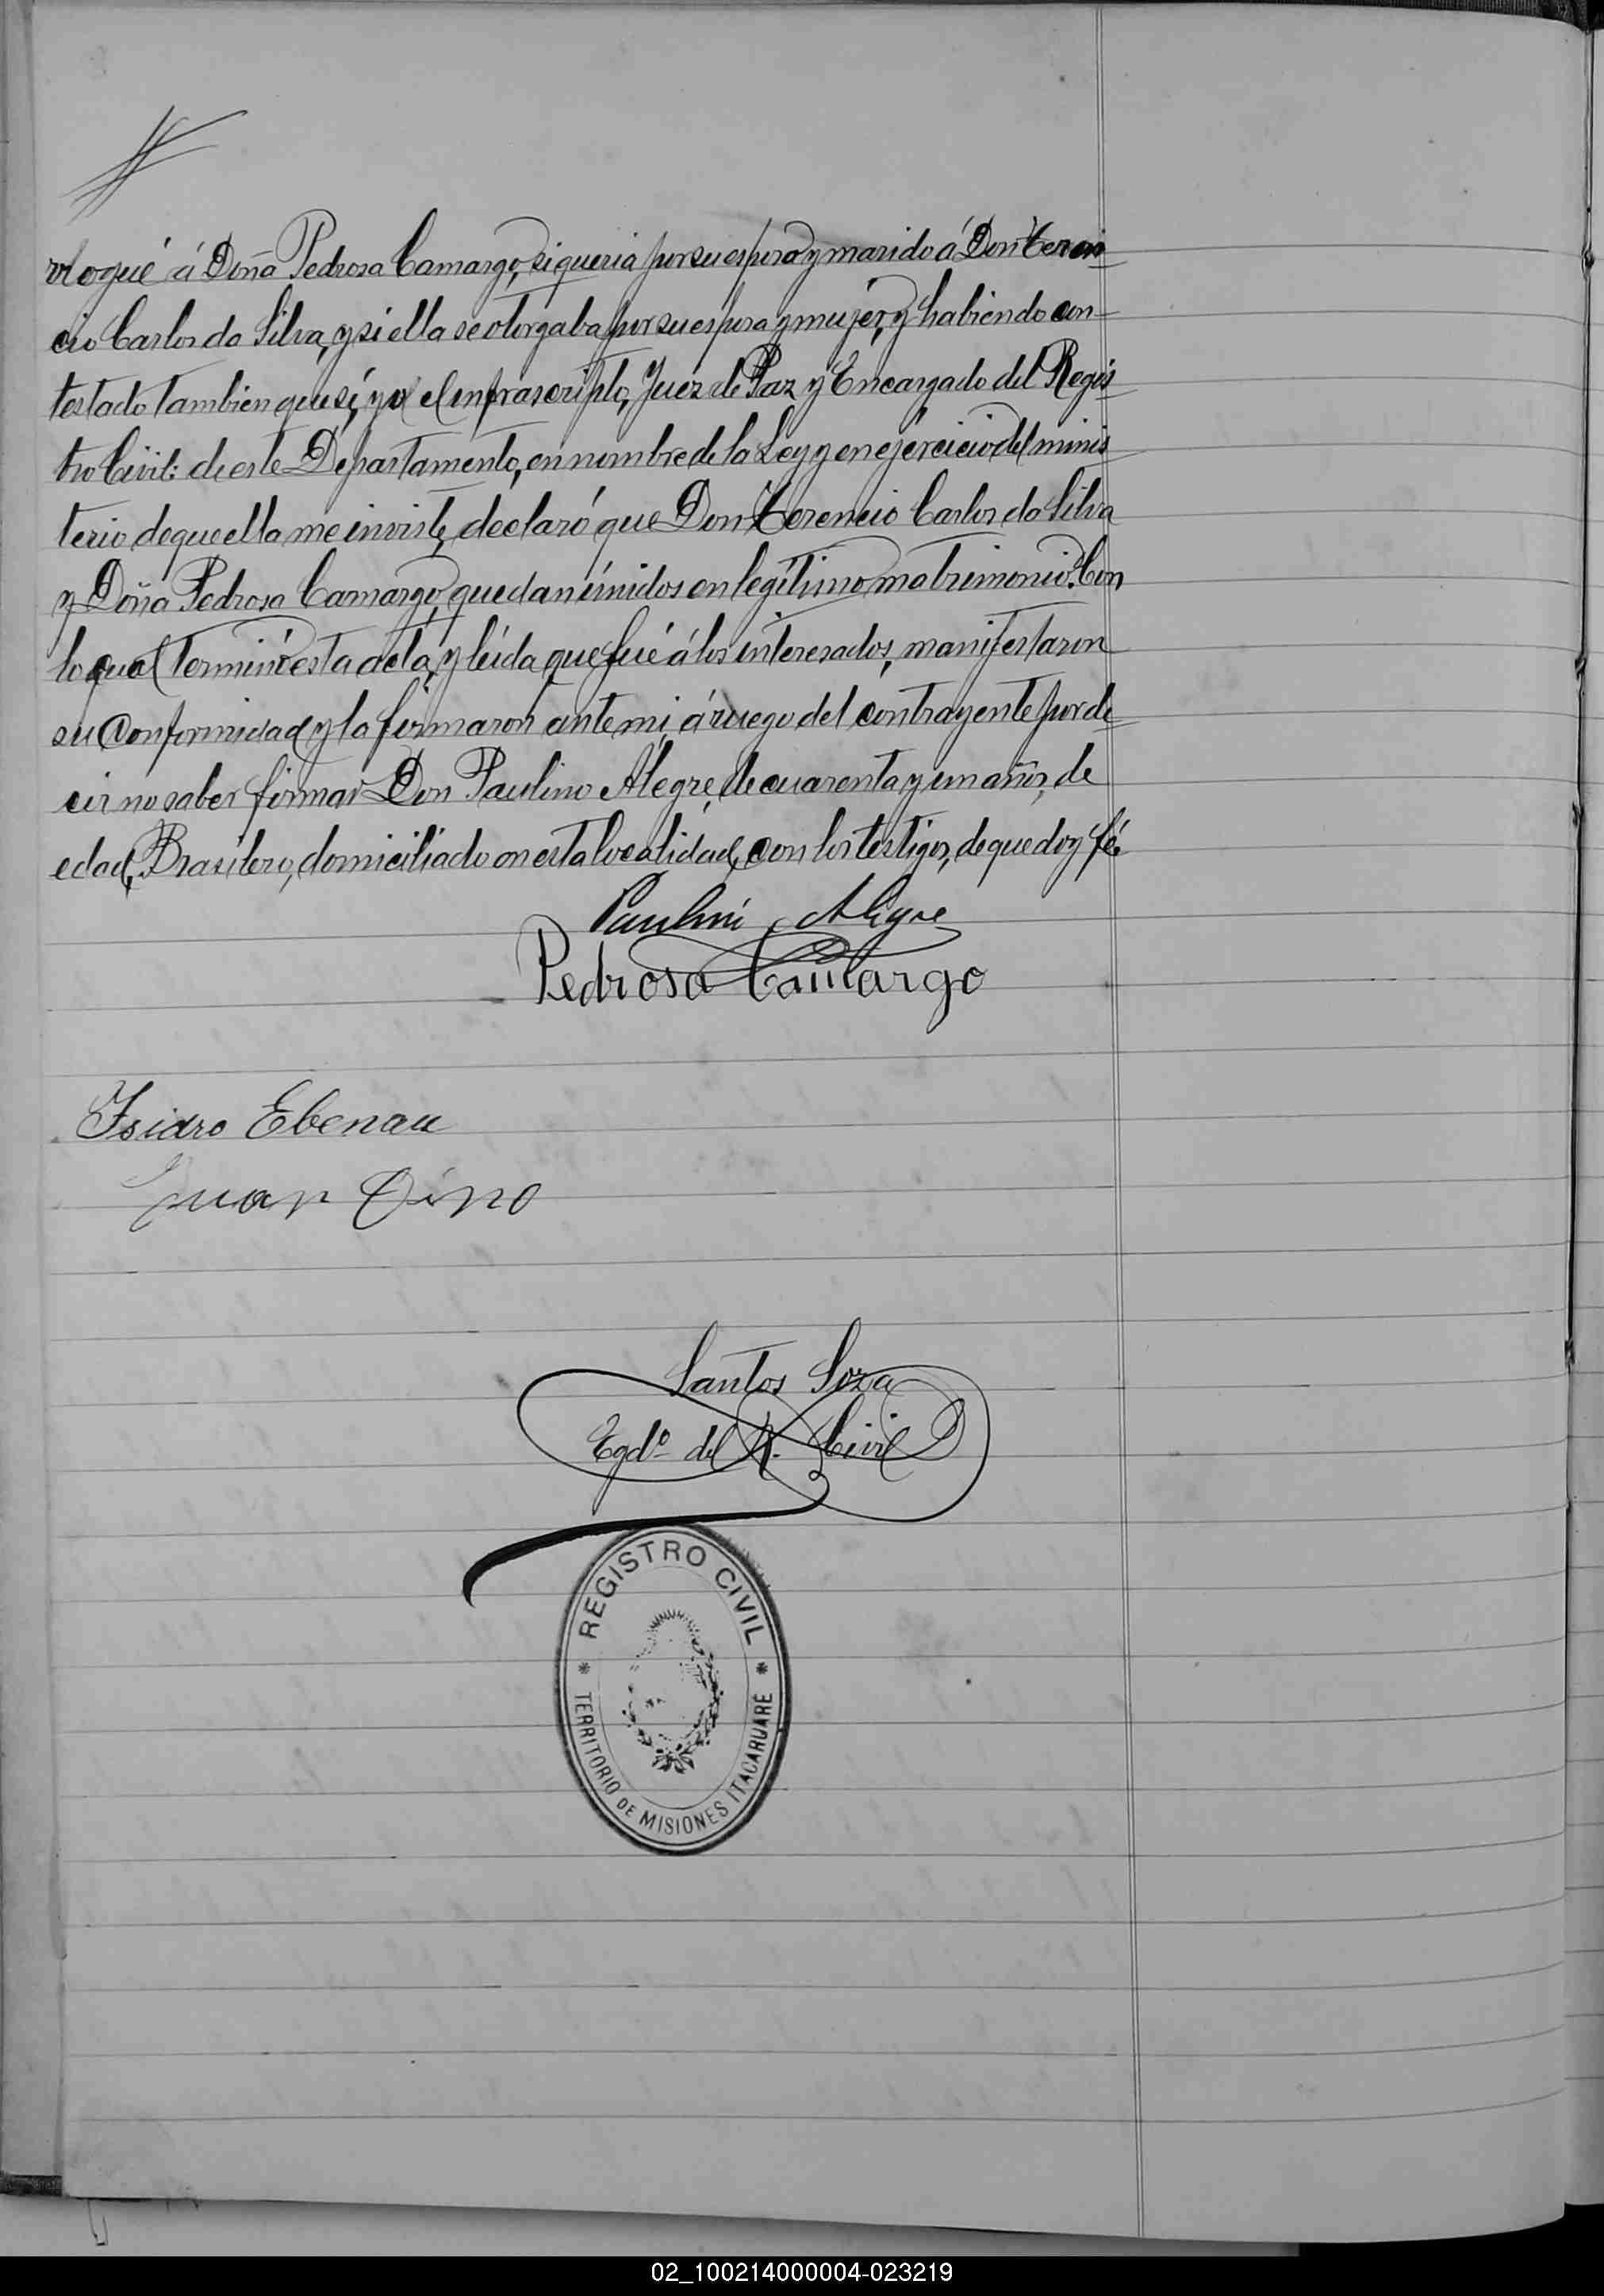 rrogué á Doña Pedrosa Camargo, si queria por su esposo y marido á Don Teren-
cio Carlos da Silva, y si ella se otorgaba por su esposa y mujer, y habiendo con-
testado tambien que sí, yo el infrascripto, Juez de Paz y Encargado del Regis
tro Civil: de este Departamento, en nombre de la Ley y en ejercicio del minis
terio de que ella me inviste, declaró que Don Terencio Carlos da Silva
y Doña Pedrosa Camargo, quedan únidos en legítimo matrimonio. Con
lo cual terminó esta acta, y leida que fué á los interesados, manifestaron
su conformidad y la firmaron ante mi, á ruego del contrayente por de-
cir no saber firmar Don Paulino Alegre, de cuarenta y un años, de
edad, Brasilero, domiciliado en esta localidad, con los testigos, de que doy fé
Paulini Aligre
Pedrosa Camargo
Isidro Ebenau
Juan
Santos Soza
Egdº del R. Civil
REGISTRO CIVIL
TERRITORIO DE MISIONES ITACARUARÉ
02_100214000004-023219